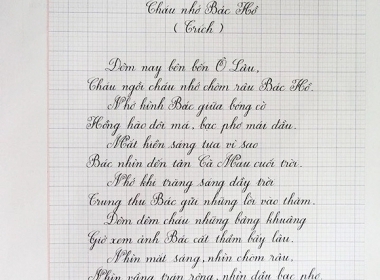 Cháu nhớ Bác Hồ
( Trích )
Đêm nay bên bến Ô Lâu,
Cháu ngồi cháu nhớ chòm râu Bác Hồ.
Nhớ hình Bác giữa bóng cờ
Hồng hào đôi má, bạc phơ mái đầu.
Mắt hiền sáng tựa vì sao
Bác nhìn đến tận Cà Mau cuối trời.
Nhớ khi trăng sáng đầy trời
Trung thu Bác gửi những lời vào thăm.
Đêm đêm cháu những bâng khuâng
Giở xem ảnh Bác cất thầm bấy lâu.
Nhìn mắt sáng, nhìn chòm râu,
Nhìn vầng trán rộng, nhìn đầu bạc phơ